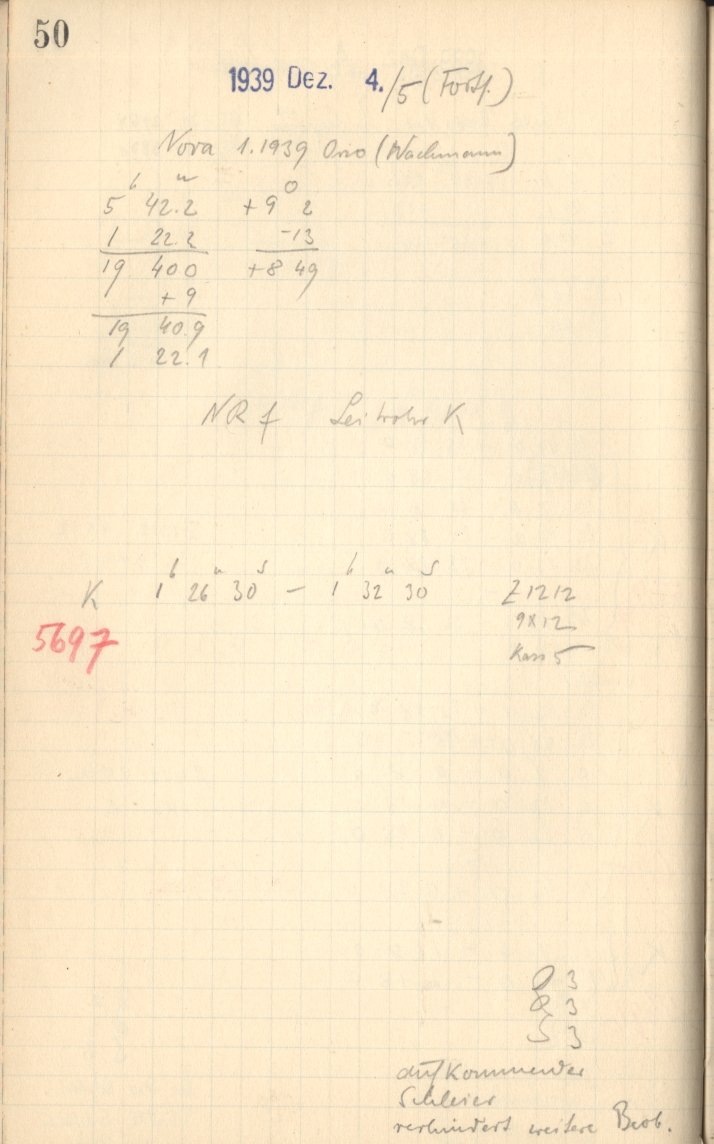 50
1939 Dez. 4./5 (Forts.)
Nova 1.1939 Orio (Wachmann)
5h 42m.2 +9° 2
1 22.2 -13
19 40 0 +8 49
+9
19 40.9
1 22.1
NR f Leitrohr K
K 1h 26m 30s – 1h 32m 30s Z 1212
9x12
5697 Kass 5
3
R 3
S 3
aufkommender
Schleier
verhindert weitere Beob.